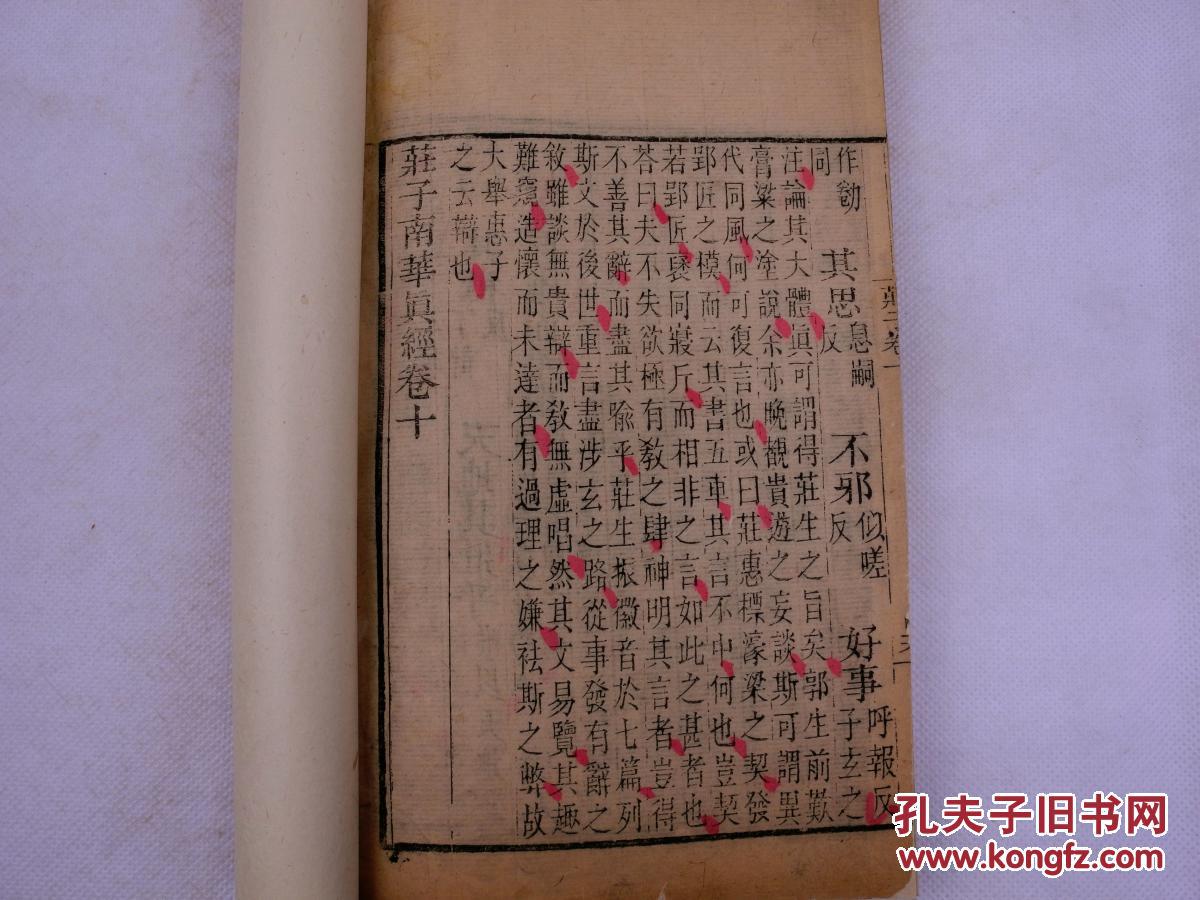 作勌同 其思息嗣反 不邪似嗟反 好事呼報反子玄之
注論其大體眞可謂得莊生之旨矣郭生前歎
膏粱之塗說余亦晚觀貴遊之妄談斯可謂異
代同風何可復言也或曰莊惠標濠梁之契發
郢匠之模而云其書五車其言不中何也豈契
若郢匠褒同寢斤而相非之言如此之甚者也
荅曰夫不失欲極有敎之肆神明其言者豈得
不善其辭而盡其喩乎莊生振徽音於七篇列
斯文於後世重言盡涉玄之路從事發有辭之
敘雖談無貴辯而敎無虛唱然其文易覽其趣
難窺造懷而未達者有過理之嫌祛斯之弊故
大舉惠子
之云辯也
莊子南華眞經卷十
孔夫子旧书网
www.kongfz.com